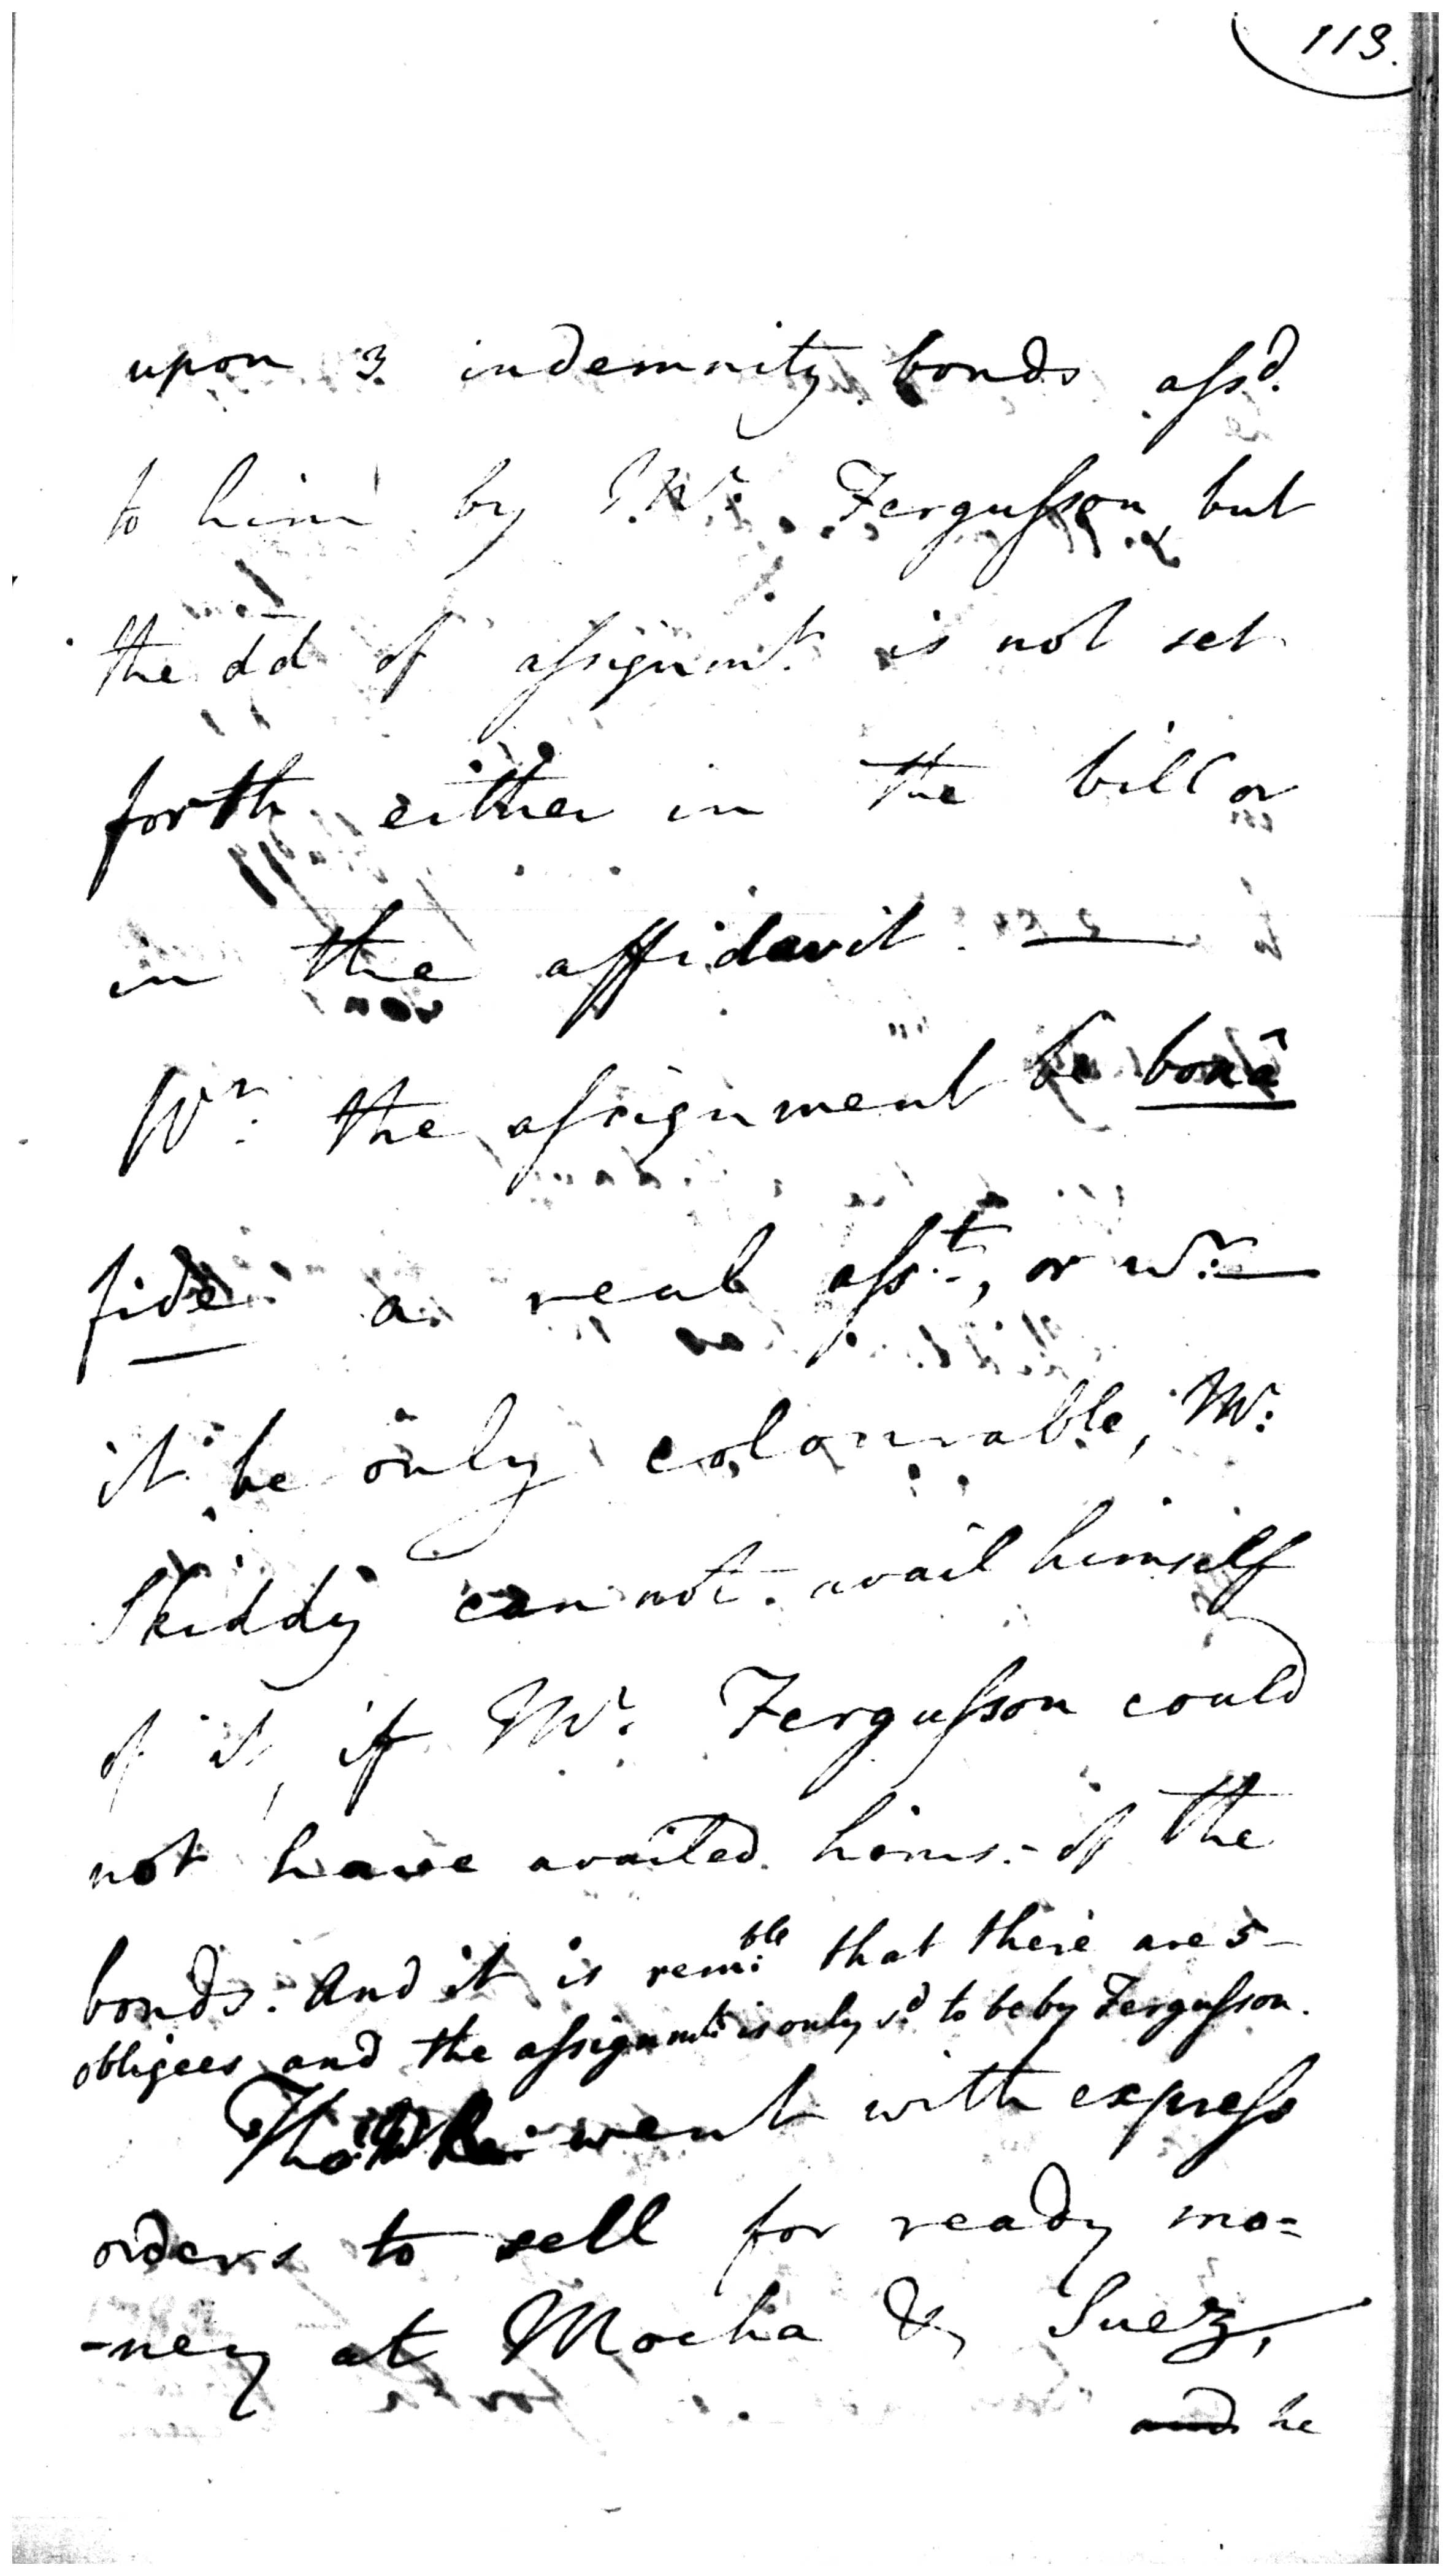 113.
upon 3 indemnity bonds assd.
to him by Mr. Fergusson but
the dd of assignmt. is not set
forth either in the bill or
in the affidavit. —
Wr. the assignment be bonâ
fide a real asst., or wr. —
it be only colourable, Mr.
Skiddy can not avail himself
of it, if Mr. Fergusson could
not have availed hims. of the
bonds. And it is remble. that there are 5
obligees and the assignmt. is only sd. to be by Fergusson.
went with express
orders to sell for ready mo=
-ney at Mocha & Suez,
and he